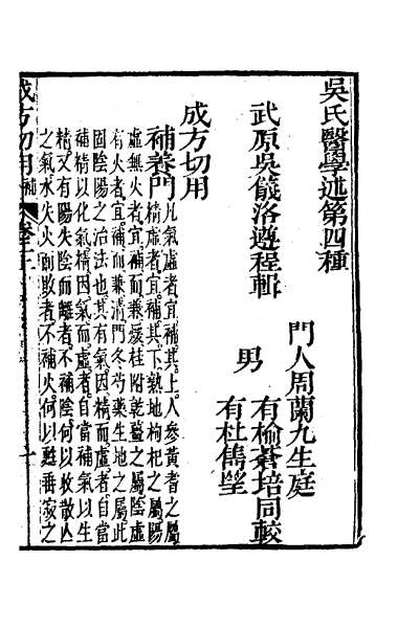 吳氏醫學述第四種
門人周蘭九生庭
武原吳儀洛遵程輯
男
有榆蒼培同較
有杜雋埜
成方切用
補養門
凡氣虛者宜補其上人參黃耆之屬
精虛者宜補其下熟地枸杞之屬陽
虛無火者宜補而兼煖桂附乾薑之屬陰虛
有火者宜補而兼清門冬芍藥生地之屬此
固陰陽之治法也其有氣因精而虛者自當
補精以化氣精因氣而虛者自當補氣以生
精又有陽失陰而離者不補陰何以收散亡
之氣水失火而敗者不補火何以甦垂寂之
成方切用 補 卷二